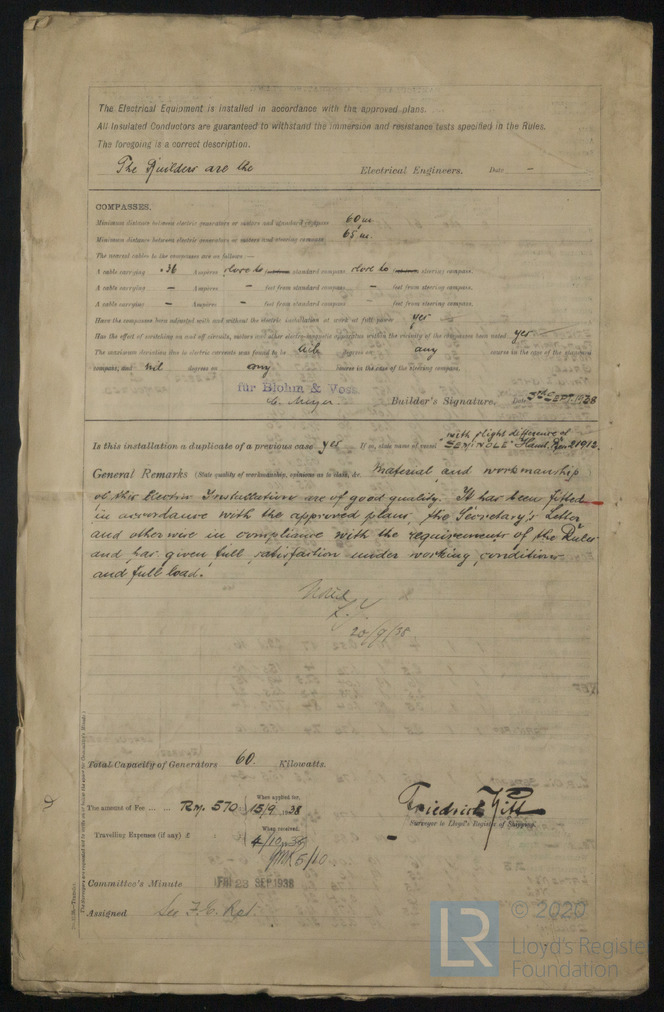 The Electrical Equipment is installed in accordance with the approved plans.
All Insulated Conductors are guaranteed to withstand the immersion and resistance tests specified in the Rules.
The foregoing is a correct description.
The Builders are the Electrical Engineers. Date –
COMPASSES.
Minimum distance between electric generators or motors and standard compass 60 m.
Minimum distance between electric generators or motors and steering compass 65 m.
The nearest cables to the compasses are as follows:—
A cable carrying .36 Ampères close to standard compass close to steering compass.
A cable carrying – Ampères – feet from standard compass – feet from steering compass.
A cable carrying – Ampères – feet from standard compass – feet from steering compass.
Have the compasses been adjusted with and without the electric installation at work at full power yes
Has the effect of switching on and off circuits, motors and other electro-magnetic apparatus within the vicinity of the compasses been noted yes
The maximum deviation due to electric currents was found to be nil degrees on any course in the case of the standard
compass, and nil degrees on any course in the case of the steering compass.
für Blohm & Voss
C. Meyer Builder's Signature. Date SEPT. 1938
with slight difference of
Is this installation a duplicate of a previous case yes If so, state name of vessel "SEMINOLE" 21912.
General Remarks (State quality of workmanship, opinions as to class, &c. Material and workmanship
of this Electric Installation are of good quality. It has been fitted
in accordance with the approved plans, the Secretary's Letter
and otherwise in compliance with the requirements of the Rules
and has given full satisfaction under working conditions
and full load.
Noted
20/9/38
Total Capacity of Generators 60. Kilowatts.
The amount of Fee ... ... RM. 570 When applied for, 15/9 1938
Travelling Expenses (if any) £ When received, 4/10 1938
5/10
Friedrich
Surveyor to Lloyd's Register of Shipping.
Committee's Minute FRI 23 SEP 1938
Assigned See F.E. Rpt.
LR © 2020
Lloyd's Register
Foundation